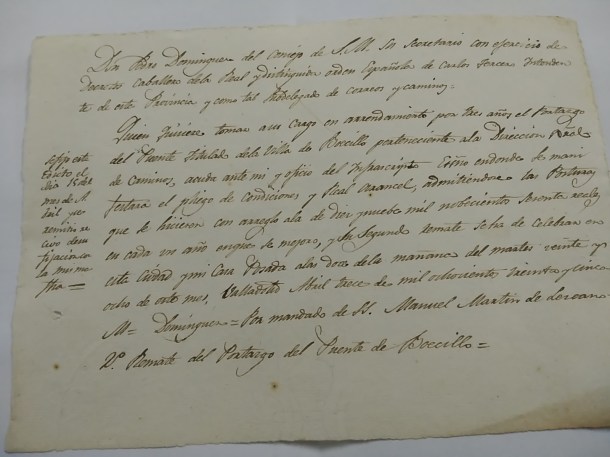 Don Pedro Dominguez del Consejo de S.M. su Secretario con ejercicio de
Decretos Caballero de la Real y distinguida orden Española de Carlos tercero Intenden
te de esta Provincia y como tal Subdelegado de correos y caminos=
Quien quisiere tomar a su cargo en arrendamiento por tres años el Portazgo
del Puente titulado de la Villa de Boecillo perteneciente a la Direccion Gral
de Caminos, acuda ante mi y oficio del Infraescripto Essno en donde se mani
festara el pliego de Condiciones y Real Arancel, admitiendose las Posturas
que se hicieren con arreglo a la de diez y nueve mil nobecientos Sesenta reales
en cada un año en que se mejoro, y su Segundo remate se ha de Celebrar en
esta Ciudad y mi Casa Posada a las doce de la mañana del martes veinte y
ocho de este mes, Valladolid Abril trece de mil ochocientos treinta y cinco
M= Dominguez= Por mandado de SS. Manuel Martin de
2º Remate del Portazgo del Puente de Boecillo=
se fijo este
Edicto el
dia 15 del
mes de A
bril, y se
remitio re
civo de su
fijacion en
la misma
fha=